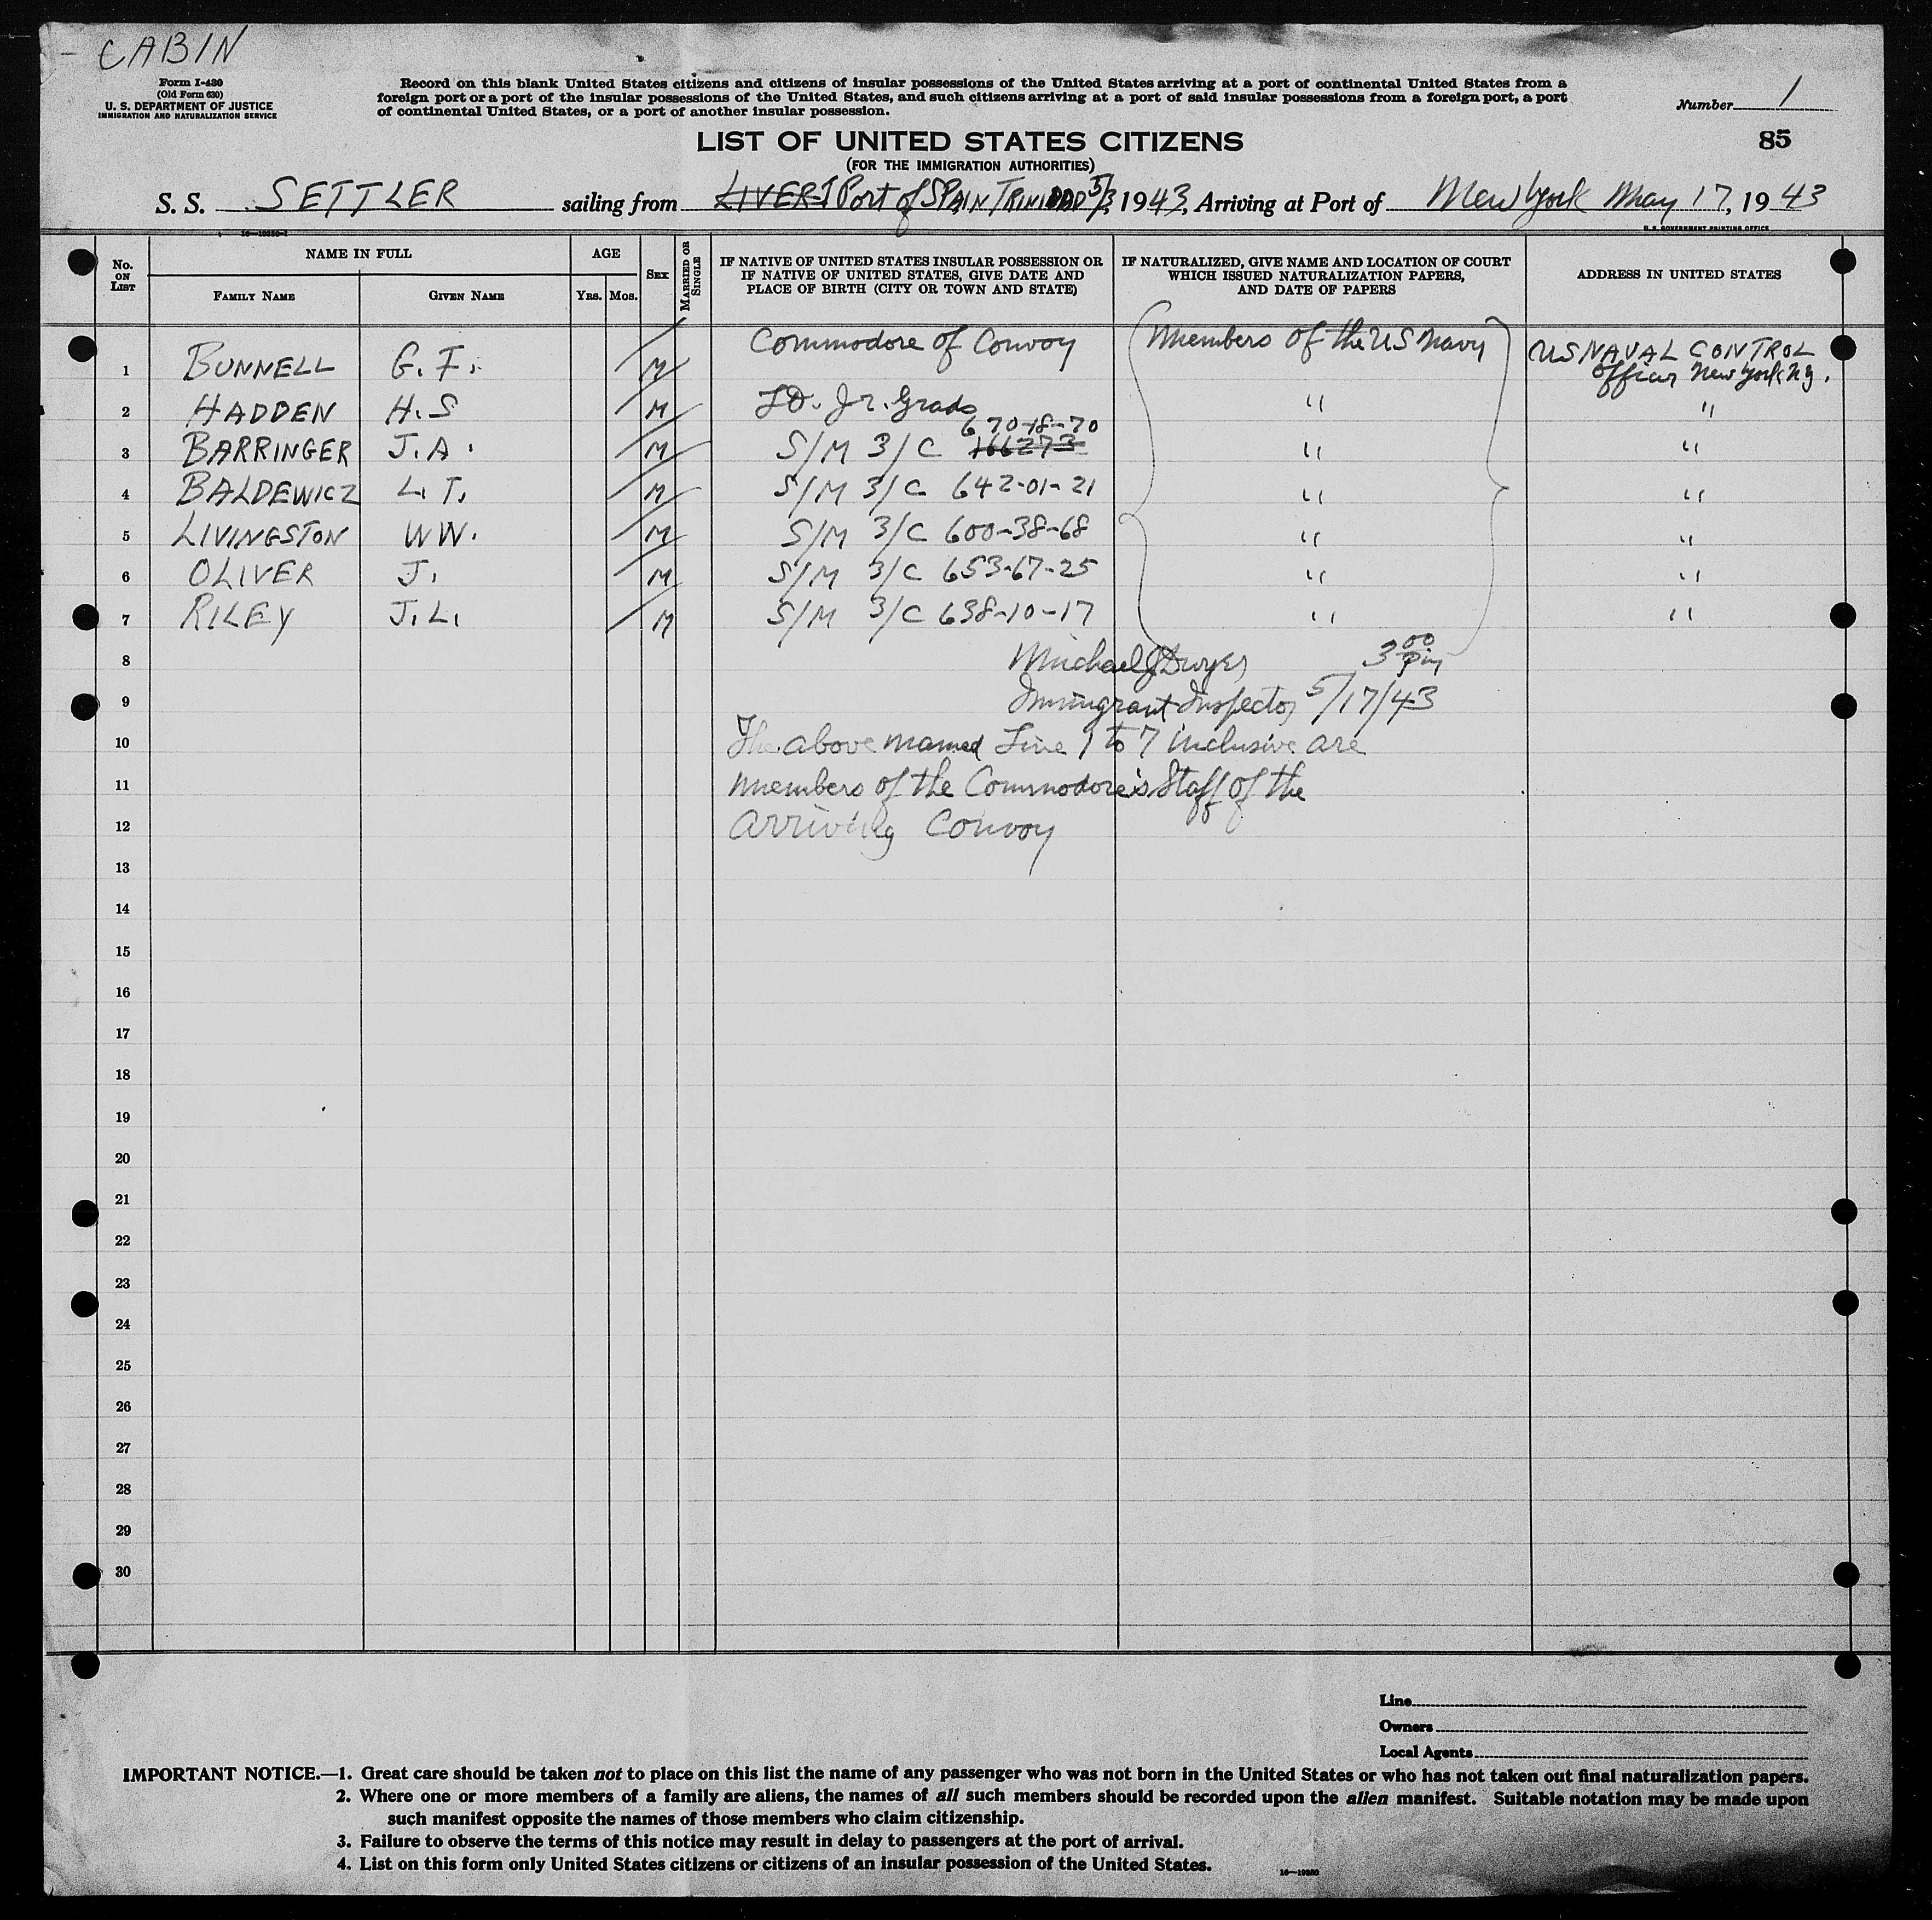 CABIN
Form I-430
(Old Form 630)
U. S. DEPARTMENT OF JUSTICE
IMMIGRATION AND NATURALIZATION SERVICE
Record on this blank United States citizens and citizens of insular possessions of the United States arriving at a port of continental United States from a
foreign port or a port of the insular possessions of the United States, and such citizens arriving at a port of said insular possessions from a foreign port, a port
of continental United States, or a port of another insular possession.
Number 1
LIST OF UNITED STATES CITIZENS
85
(FOR THE IMMIGRATION AUTHORITIES)
S. S. SETTLER sailing from Port of SPAIN TRINIDAD 5/3, 1943, Arriving at Port of New York May 17, 1943
16—19350-1
U. S. GOVERNMENT PRINTING OFFICE
No. ON LIST
NAME IN FULL
FAMILY NAME GIVEN NAME
AGE
YRS. MOS.
SEX
MARRIED OR SINGLE
IF NATIVE OF UNITED STATES INSULAR POSSESSION OR
IF NATIVE OF UNITED STATES, GIVE DATE AND
PLACE OF BIRTH (CITY OR TOWN AND STATE)
IF NATURALIZED, GIVE NAME AND LOCATION OF COURT
WHICH ISSUED NATURALIZATION PAPERS,
AND DATE OF PAPERS
ADDRESS IN UNITED STATES
1 BUNNELL G. F. M Commodore of Convoy Members of the US Navy US NAVAL CONTROL
Officer New York NY.
2 HADDEN H. S M Jr. Grade " "
670-18-70
3 BARRINGER J. A. M S/M 3/C 166273 " "
4 BALDEWICZ L. T. M S/M 3/C 642-01-21 " "
5 LIVINGSTON WW. M S/M 3/C 600-38-68 " "
6 OLIVER J. M S/M 3/C 653-67-25 " "
7 RILEY J. L. M S/M 3/C 638-10-17 " "
8 Michael J Dwyer 3 00 pm
9 Immigrant Inspector 5/17/43
10 The above named Line 1 to 7 inclusive are
11 members of the Commodore's Staff of the
12 Arriving Convoy
13
14
15
16
17
18
19
20
21
22
23
24
25
26
27
28
29
30
Line
Owners
Local Agents
IMPORTANT NOTICE.—1. Great care should be taken not to place on this list the name of any passenger who was not born in the United States or who has not taken out final naturalization papers.
2. Where one or more members of a family are aliens, the names of all such members should be recorded upon the alien manifest. Suitable notation may be made upon
such manifest opposite the names of those members who claim citizenship.
3. Failure to observe the terms of this notice may result in delay to passengers at the port of arrival.
4. List on this form only United States citizens or citizens of an insular possession of the United States.
16—19350